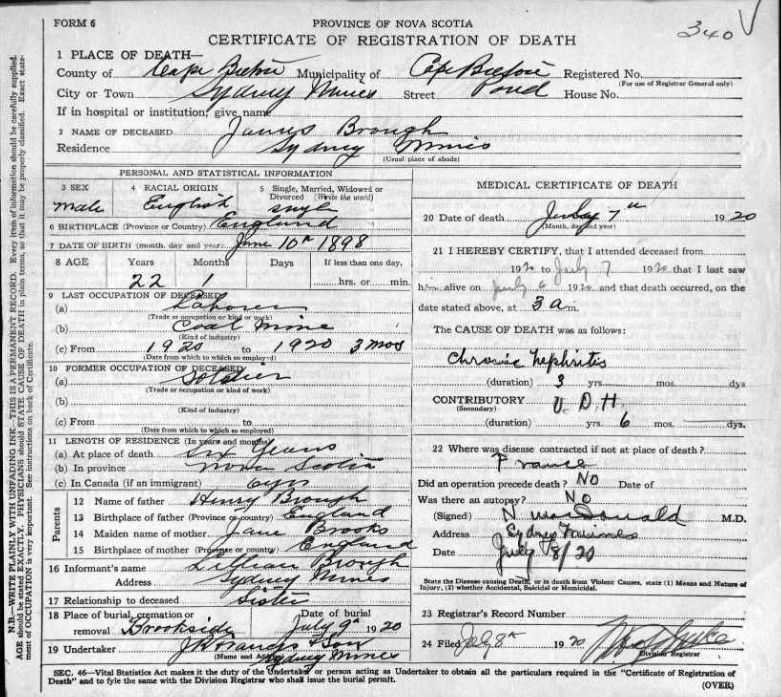 FORM 6
PROVINCE OF NOVA SCOTIA
340
CERTIFICATE OF REGISTRATION OF DEATH
N.B.—WRITE PLAINLY WITH UNFADING INK—THIS IS A PERMANENT RECORD. Every item of information should be carefully supplied. AGE should be stated EXACTLY. PHYSICIANS should STATE CAUSE OF DEATH in plain terms, so that it may be properly classified. Exact statement of OCCUPATION is very important. See instructions on back of Certificate.
1 PLACE OF DEATH—
County of Cape Breton Municipality of Cape Breton Registered No.
(For use of Registrar General only)
City or Town Sydney Mines Street Pond House No.
If in hospital or institution, give name
2 NAME OF DECEASED James Brough
Residence Sydney Mines
(Usual place of abode)
PERSONAL AND STATISTICAL INFORMATION
3 SEX 4 RACIAL ORIGIN 5 Single, Married, Widowed or Divorced (Write the word)
Male English
6 BIRTHPLACE (Province or Country) England
7 DATE OF BIRTH (month, day and year) June 10th 1898
8 AGE Years Months Days If less than one day,
22 1 hrs. or min.
9 LAST OCCUPATION OF DECEASED
(a) Laborer
(Trade or occupation or kind of work)
(b) Coal Mine
(Kind of industry)
(c) From 1920 to 1920 3 mos
(Date from which to which so employed)
10 FORMER OCCUPATION OF DECEASED
(a) Soldier
(Trade or occupation or kind of work)
(b)
(Kind of industry)
(c) From to
(Date from which to which so employed)
11 LENGTH OF RESIDENCE (In years and months)
(a) At place of death Six Years
(b) In province Nova Scotia
(c) In Canada (if an immigrant) 6 yrs
Parents
12 Name of father Henry Brough
13 Birthplace of father (Province or country) England
14 Maiden name of mother Jane Brooks
15 Birthplace of mother (Province or country) England
16 Informant's name Lillian Brough
Address Sydney Mines
17 Relationship to deceased Sister
18 Place of burial, cremation or removal Brookside Date of burial July 9th 1920
19 Undertaker & Son
(Name and Address) Sydney Mines
MEDICAL CERTIFICATE OF DEATH
20 Date of death July 7th 1920
(Month, day and year)
21 I HEREBY CERTIFY, that I attended deceased from
1920 to July 7 1920 that I last saw
him alive on July 6 1920 and that death occurred, on the
date stated above, at 3 a m.
The CAUSE OF DEATH was as follows:
Chronic Nephritis
(duration) 3 yrs. mos. dys
CONTRIBUTORY V. D. H.
(Secondary)
(duration) yrs. 6 mos. dys
22 Where was disease contracted if not at place of death?
France
Did an operation precede death? No Date of
Was there an autopsy? No
(Signed) N MacDonald M.D.
Address Sydney Mines
Date July 8/20
State the Disease causing Death, or in death from Violent Causes, state (1) Means and Nature of Injury, (2) whether Accidental, Suicidal or Homicidal.
23 Registrar's Record Number
24 Filed July 8th 1920
Division Registrar
SEC. 46—Vital Statistics Act makes it the duty of the Undertaker or person acting as Undertaker to obtain all the particulars required in the "Certificate of Registration of
Death" and to fyle the same with the Division Registrar who shall issue the burial permit.
(OVER)